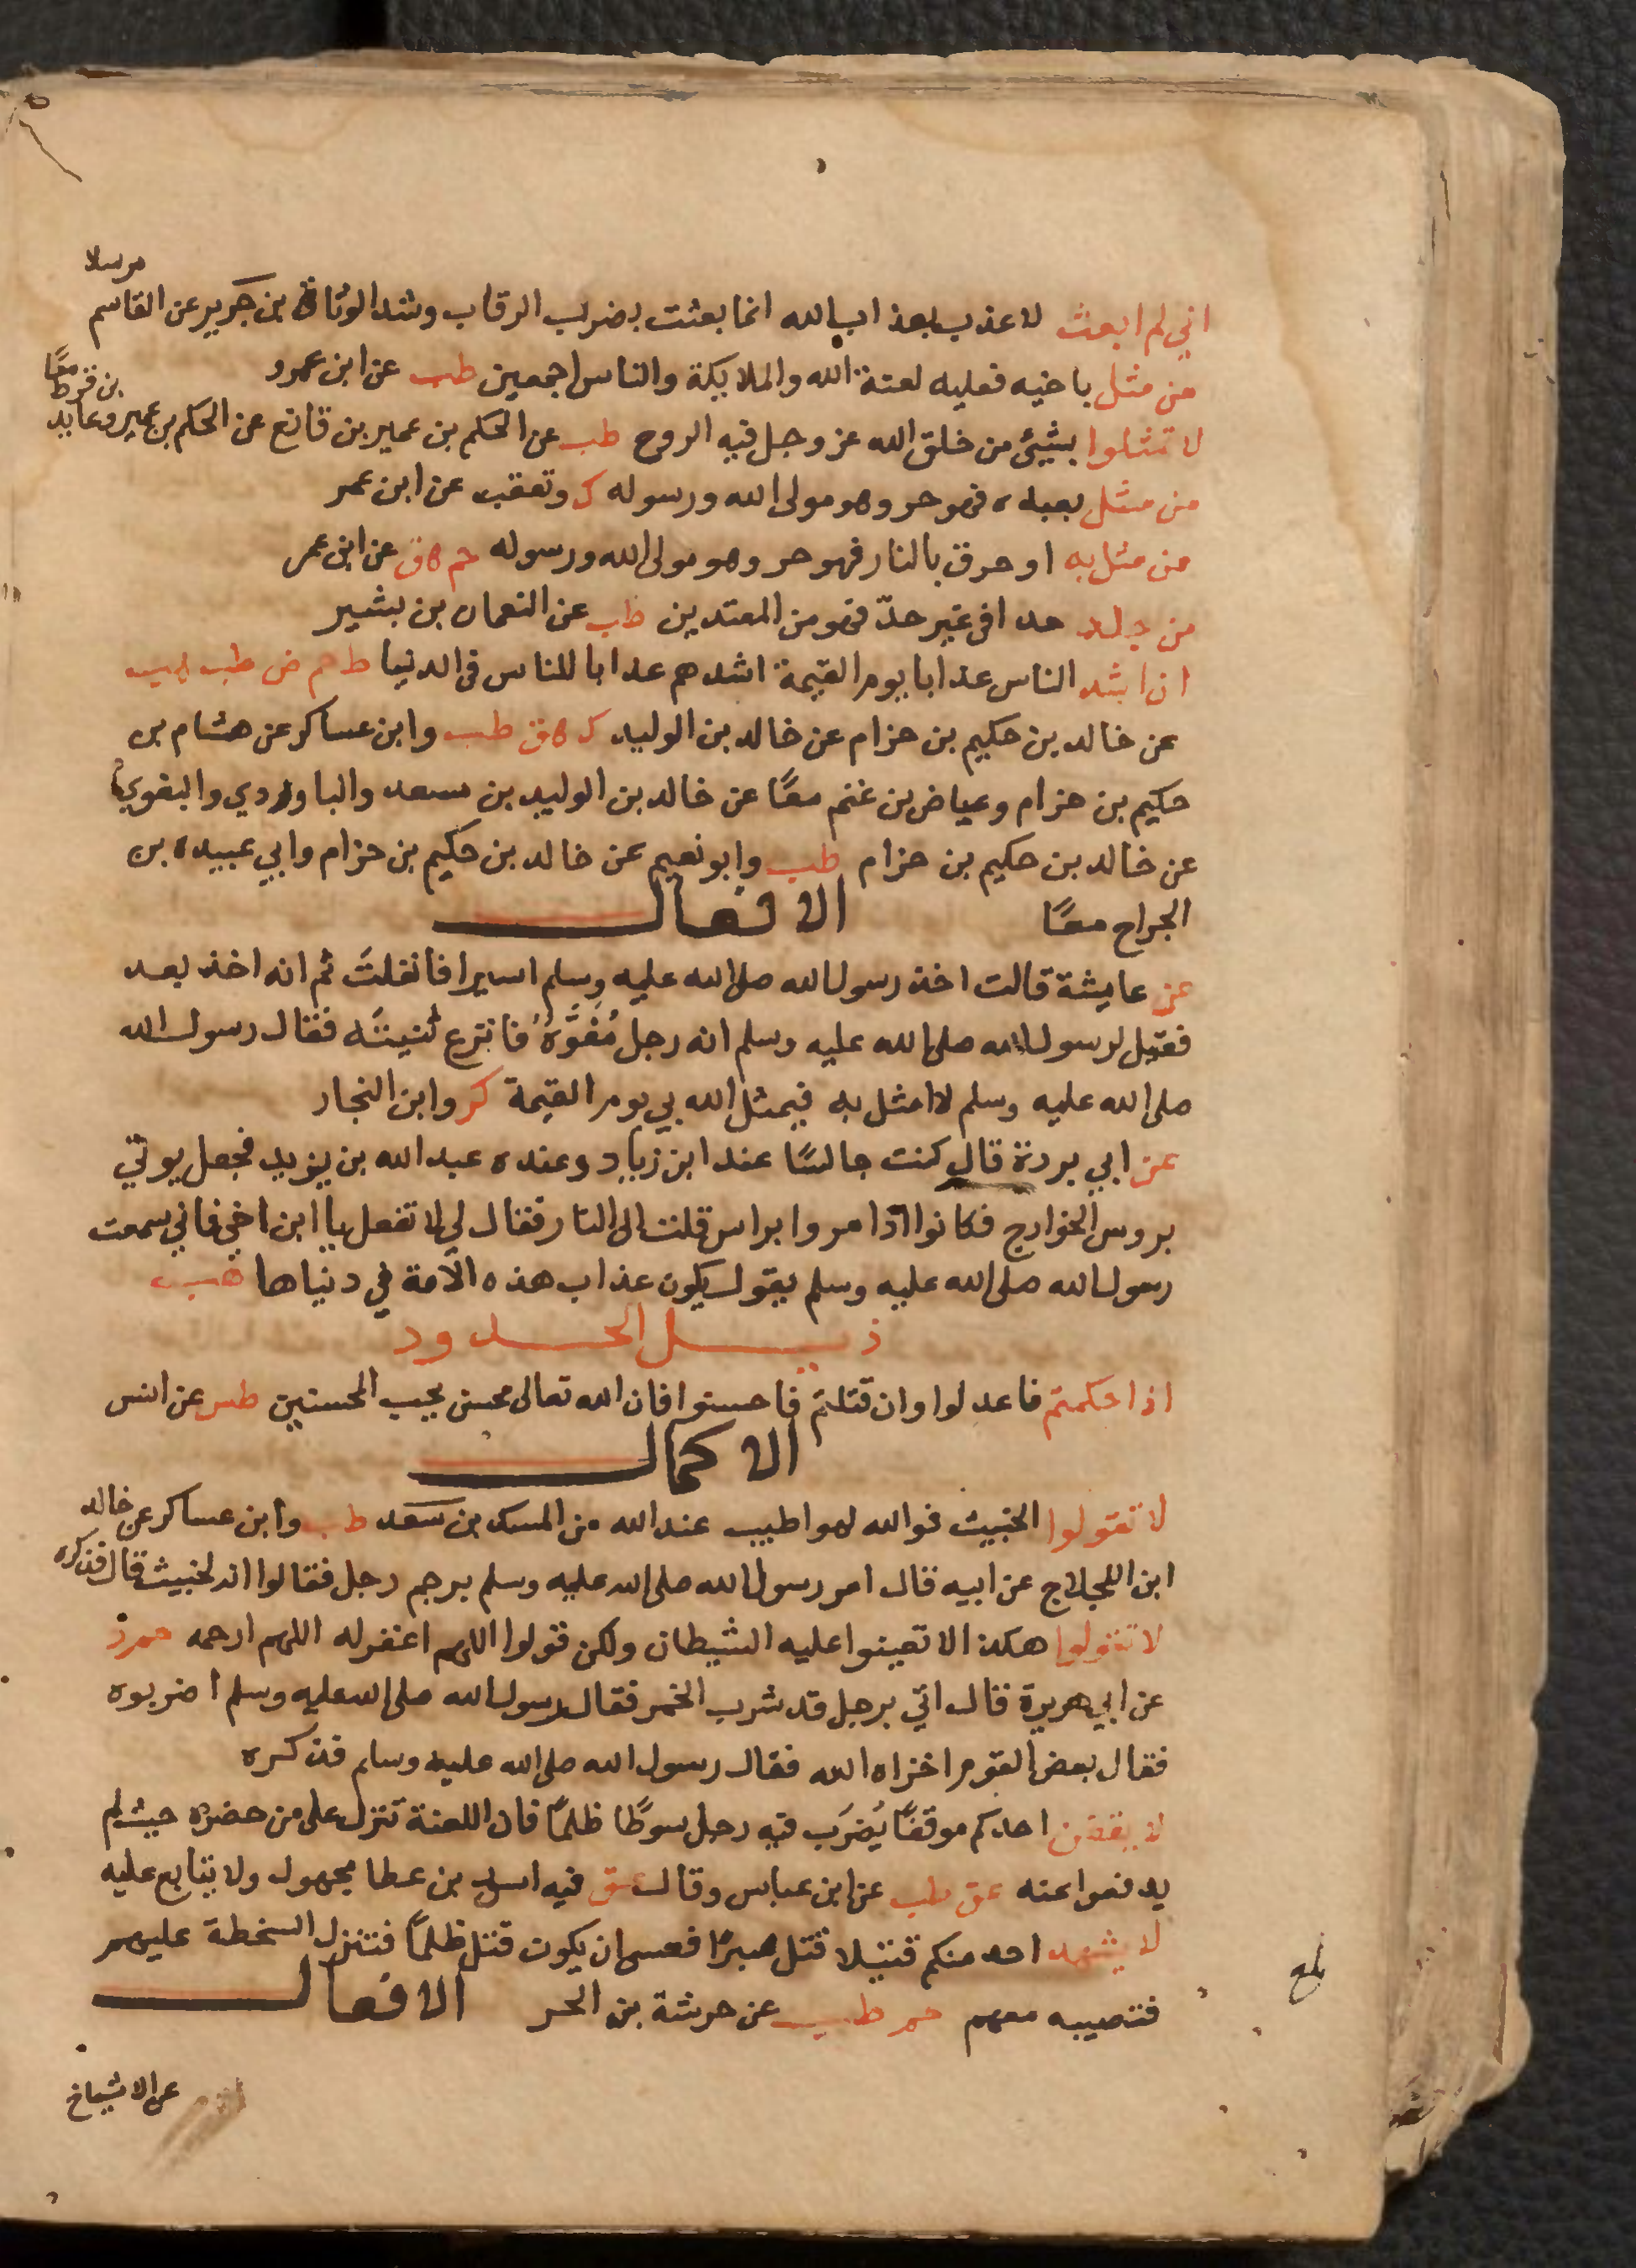 اني لم ابعث لاعذب بعذاب الله انما بعثت بضرب الرقاب وشد الوثاق بن جرير عن القاسم
مرسلا
من مثل باخيه فعليه لعنة الله والملايكة والناس اجمعين طب عن ابن عمرو
لا تمثلوا بشيئ من خلق الله عز وجل فيه الروح طب عن الحكم بن عمير بن قانع عن الحكم بن عمير وعايد
بن قرط معًا
من مثل بعبده فهو حر وهو مولى الله ورسوله ك وتعقب عن ابن عمر
من مثل به او حرق بالنار فهو حر وهو مولى الله ورسوله حم هق عن ابن عمر
من جلد حدا في غير حدّ فهو من المعتدين طب عن النعمان بن بشير
ان اشد الناس عذابا يوم القيمة اشدهم عذابا للناس في الدنيا ط حم ض طب هب
عن خالد بن حكيم بن حزام عن خالد بن الوليد ك هق طب وابن عساكر عن هشام بن
حكيم بن حزام وعياض بن غنم معًا عن خالد بن الوليد بن سعد والباوردي والبغوي
عن خالد بن حكيم بن حزام طب وابو نعيم عن خالد بن حكيم بن حزام وابي عبيده بن
الجراح معًا الافعال
عن عايشة قالت اخذ رسول الله صلى الله عليه وسلم اسيرا فانفلت ثم انه اخذ بعد
فقيل لرسول الله صلى الله عليه وسلم انه رجل مُفَوَّهٌ فانتزع ثنيتَه فقال رسول الله
صلى الله عليه وسلم لا امثل به فيمثل الله بي يوم القيمة كر وابن النجار
عن ابي بردة قال كنت جالسًا عند ابن زياد وعنده عبد الله بن يزيد فجعل يوتي
بروس الخوارج فكانوا اذا مروا براس قلت الى النار فقال لي لا تفعل يا ابن اخي فاني سمعت
رسول الله صلى الله عليه وسلم يقول يكون عذاب هذه الامة في دنياها هب
ذيل الحدود
اذا حكمتم فاعدلوا وان قتلتم فاحسنوا فان الله تعالى محسن يحب المحسنين طس عن انس
الاكمال
لا تقولوا الخبيث فوالله لهو اطيب عند الله من المسك بن سعد طب وابن عساكر عن خالد
ابن اللجلاج عن ابيه قال امر رسول الله صلى الله عليه وسلم برجم رجل فقالوا انه لخبيث قال فذكره
لا تقولوا هكذا لا تعينوا عليه الشيطان ولكن قولوا اللهم اغفر له اللهم ارحمه حم ز
عن ابي هريرة قال اتي برجل قد شرب الخمر فقال رسول الله صلى الله عليه وسلم اضربوه
فقال بعض القوم اخزاه الله فقال رسول الله صلى الله عليه وسلم فذكره
لا يقفن احدكم موقفًا يُضرَب فيه رجل سوطًا ظلمًا فان اللعنة تنزل على من حضره حيث لم
يدفعوا عنه عق طب عن ابن عباس وقال عق فيه اسد بن عطا مجهول ولا يتابع عليه
لا يشهد احد منكم قتيلا قتل صبرًا فعسى ان يكون قتل ظلمًا فتنزل السخطة عليهم
فتصيبه معهم حم طب عن خرشة بن الحر الافعال
بلغ
عن الاشياخ